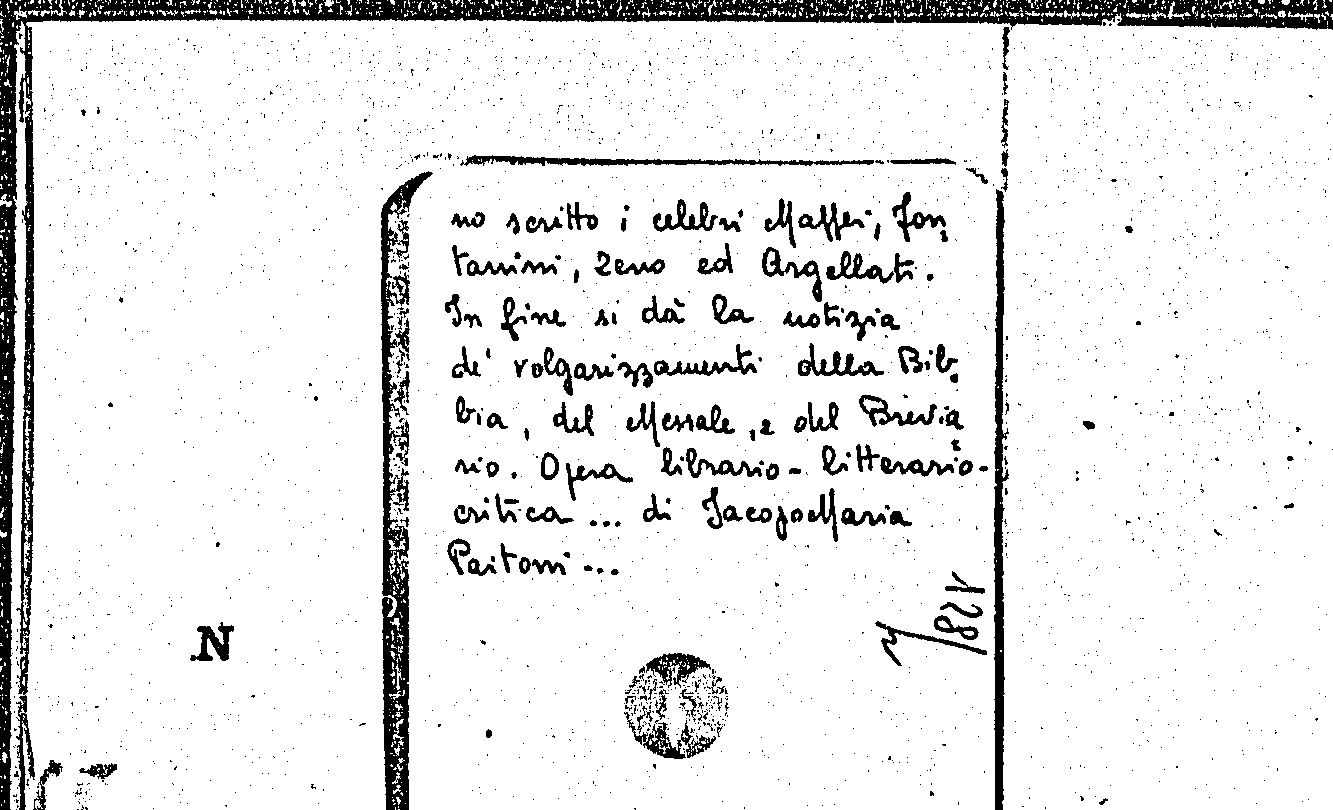 no scritto i celebri Maffei, Fon=
tanini, Zeno ed Argellati.
In fine si dà la notizia
de' volgarizzamenti della Bib=
bia, del Messale, e del Brevia=
rio. Opera librario-litterario-
critica ... di JacopoMaria
Paitoni ...
N